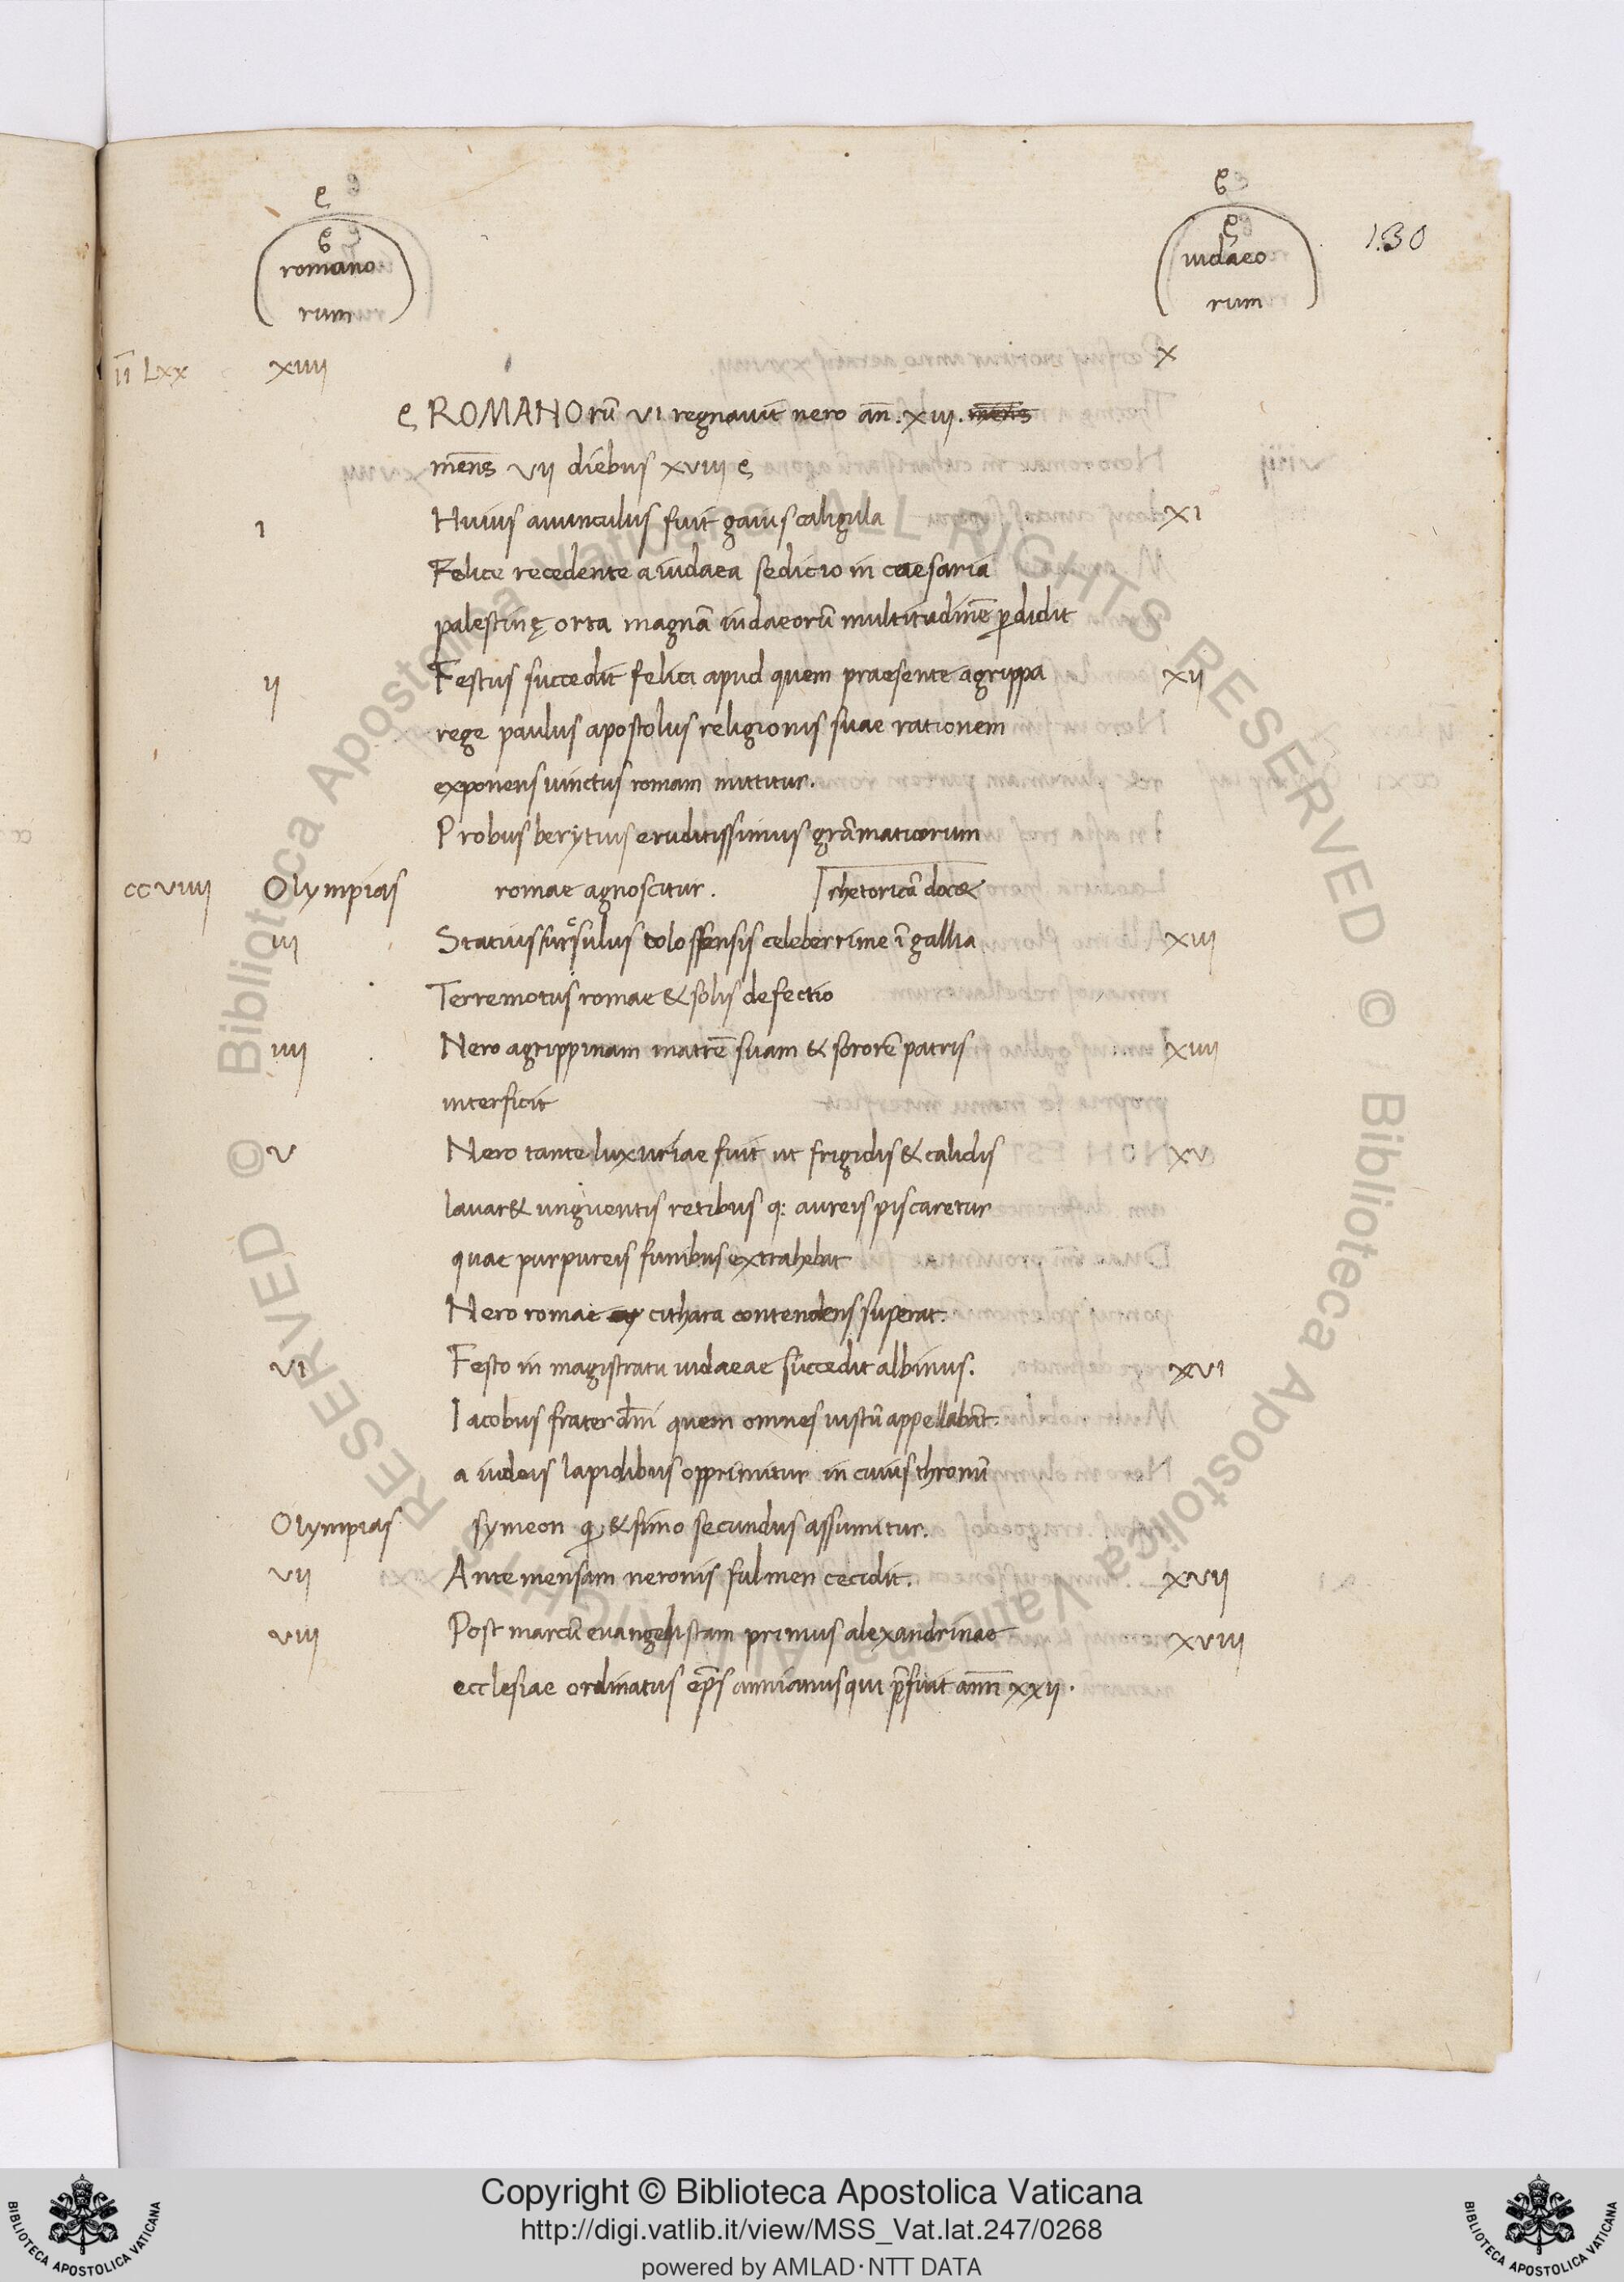 romano iudaeo 130
rum rum
īī Lxx xiiii x
ROMANOrū vi regnavit nero an̄. xiii. mens̄
mens̄ vii diebus xviii
i Huius avunculus fuit gaius caligula xi
Felice recedente a iudaea sedicio in caesaria
palestinę orta magnā iudaeorū multitudinē pdidit
ii Festus succedit felici apud quem praesente agrippa xii
rege paulus apostolus religionis suae rationem
exponens vinctus romam mittitur.
Probus berytius eruditissimus grāmaticorum
ccviiii Olympias romae agnoscitur. rhetoricā doc&
iii Statius sursulus tolossensis celeberrime ī gallia xiii
Terremotus romae & solis defectio
iiii Nero agrippinam matrē suam & sororē patris xiiii
interficit
v Nero tante luxuriae fuit ut frigidis & calidis xv
lavar& unguentis retibus q: aureis piscaretur
quae purpureis funibus extrahebat
Nero romae cithara contendens superat.
vi Festo in magistratu iudaeae succedit albinus. xvi
Iacobus frater dn̄i quem omnes iustū appellabāt.
a iudeis lapidibus opprimitur in cuius thronū
Olympias symeon q & simo secundus assumitur.
vii Ante mensam neronis fulmen cecidit. xvii
viii Post marcū evangelistam primus alexandrinae xviii
ecclesiae ordinatus ep̄s annianus qui p̄fuit ann̄ xxii.
Copyright © Biblioteca Apostolica Vaticana
http://digi.vatlib.it/view/MSS_Vat.lat.247/0268
powered by AMLAD·NTT DATA
BIBLIOTECA APOSTOLICA VATICANA
BIBLIOTECA APOSTOLICA VATICANA
© Biblioteca Apostolica Vaticana ALL RIGHTS RESERVED © Biblioteca Apostolica Vaticana ALL RIGHTS RESERVED